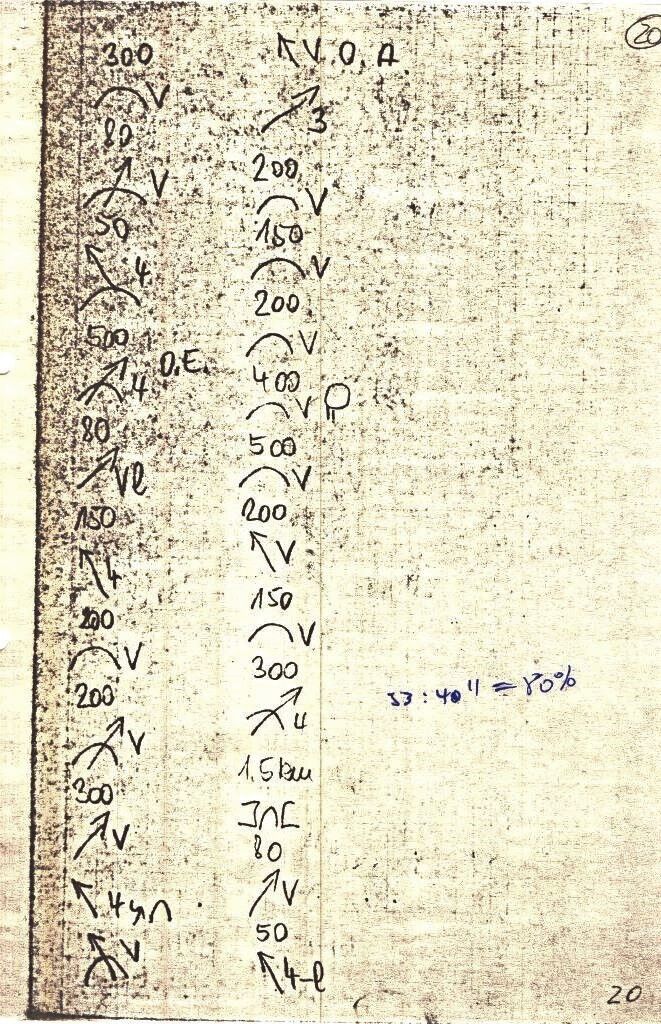 20
300
V
80
V
50
4
500
4 O.E.
80
Vl
150
4
200
V
200
V
300
V
4
V
V.O.A
3
200
V
150
V
200
V
400
V
500
V
200
V
150
V
300
4
1,5 km
80
V
50
4-l
53:40" = 80%
20